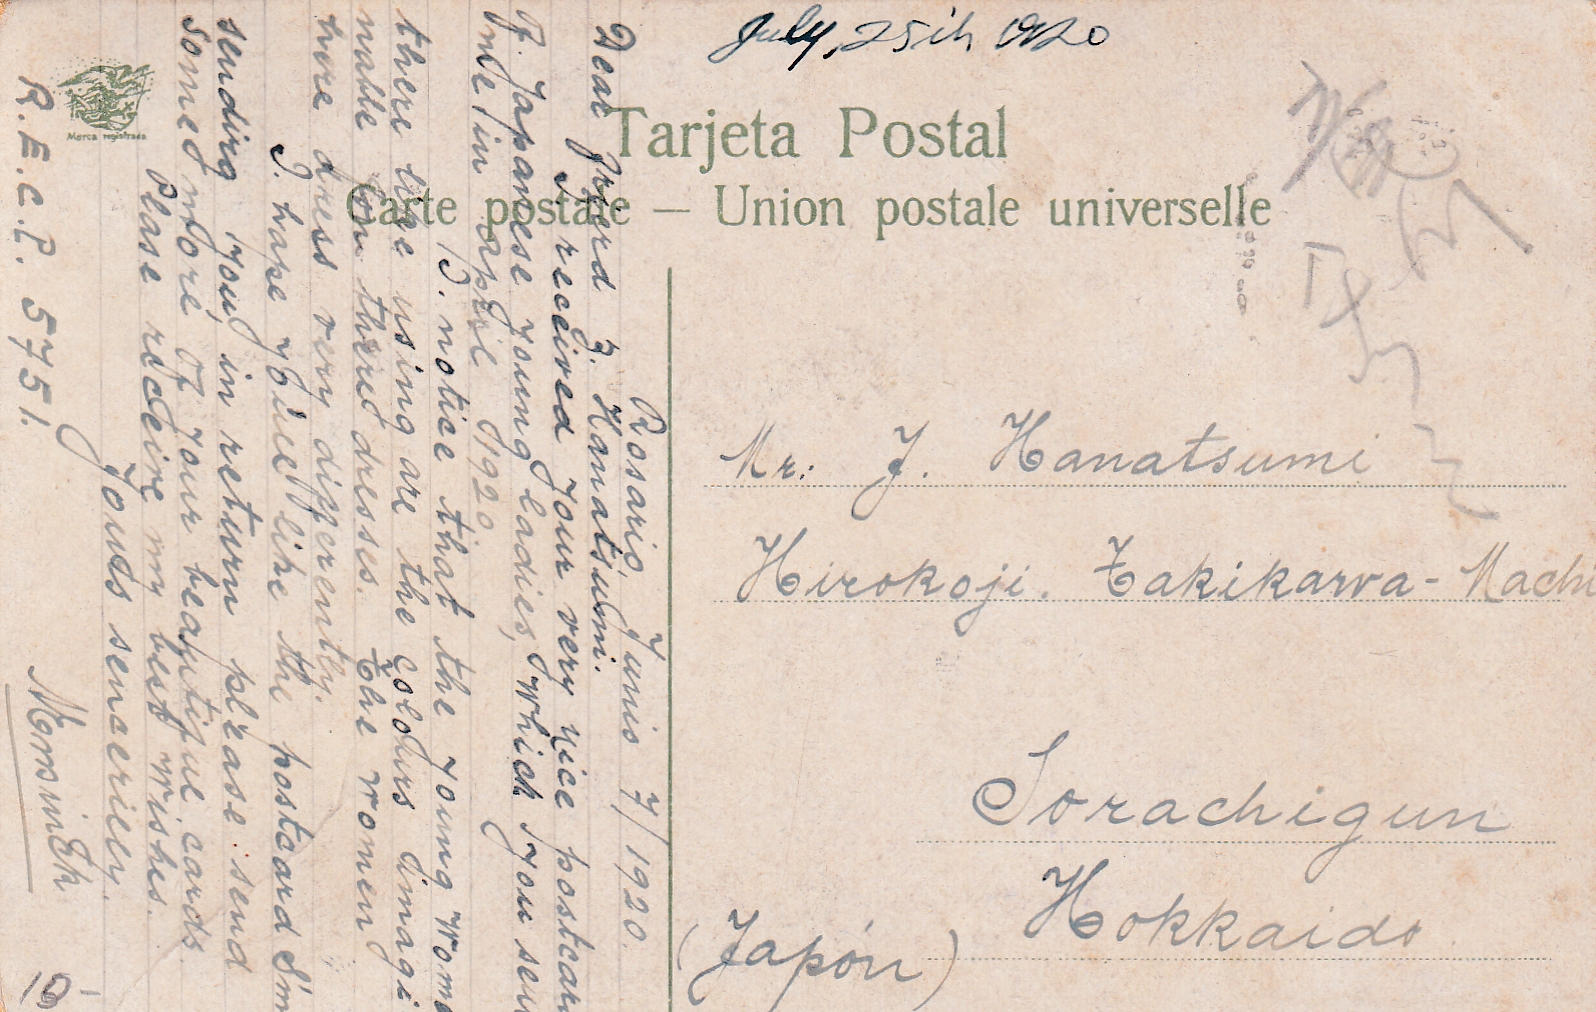 July, 25th 1920
Tarjeta Postal
Carte postale — Union postale universelle
Marca registrada
Mr: J. Hanatsumi
Hirokoji. Takikawa-Machi
Sorachigun
Hokkaido
(Japón)
Rosario, Junio 7/1920.
Dear Frierd J. Hanatsumi.
I received your very nice postcar
of Japanese young ladies, which you sen
me in april 1920
I. notice that the young wome
there like using are the colours imagi
nable for there dresses. The women
here dress very differently.
I. hape youll like the postcard I'm
sending you, in return please send
some more of your beautiful cards
Plase receive my best wishes.
Yours senceriely.
R.E.C.P. 5751.
10-